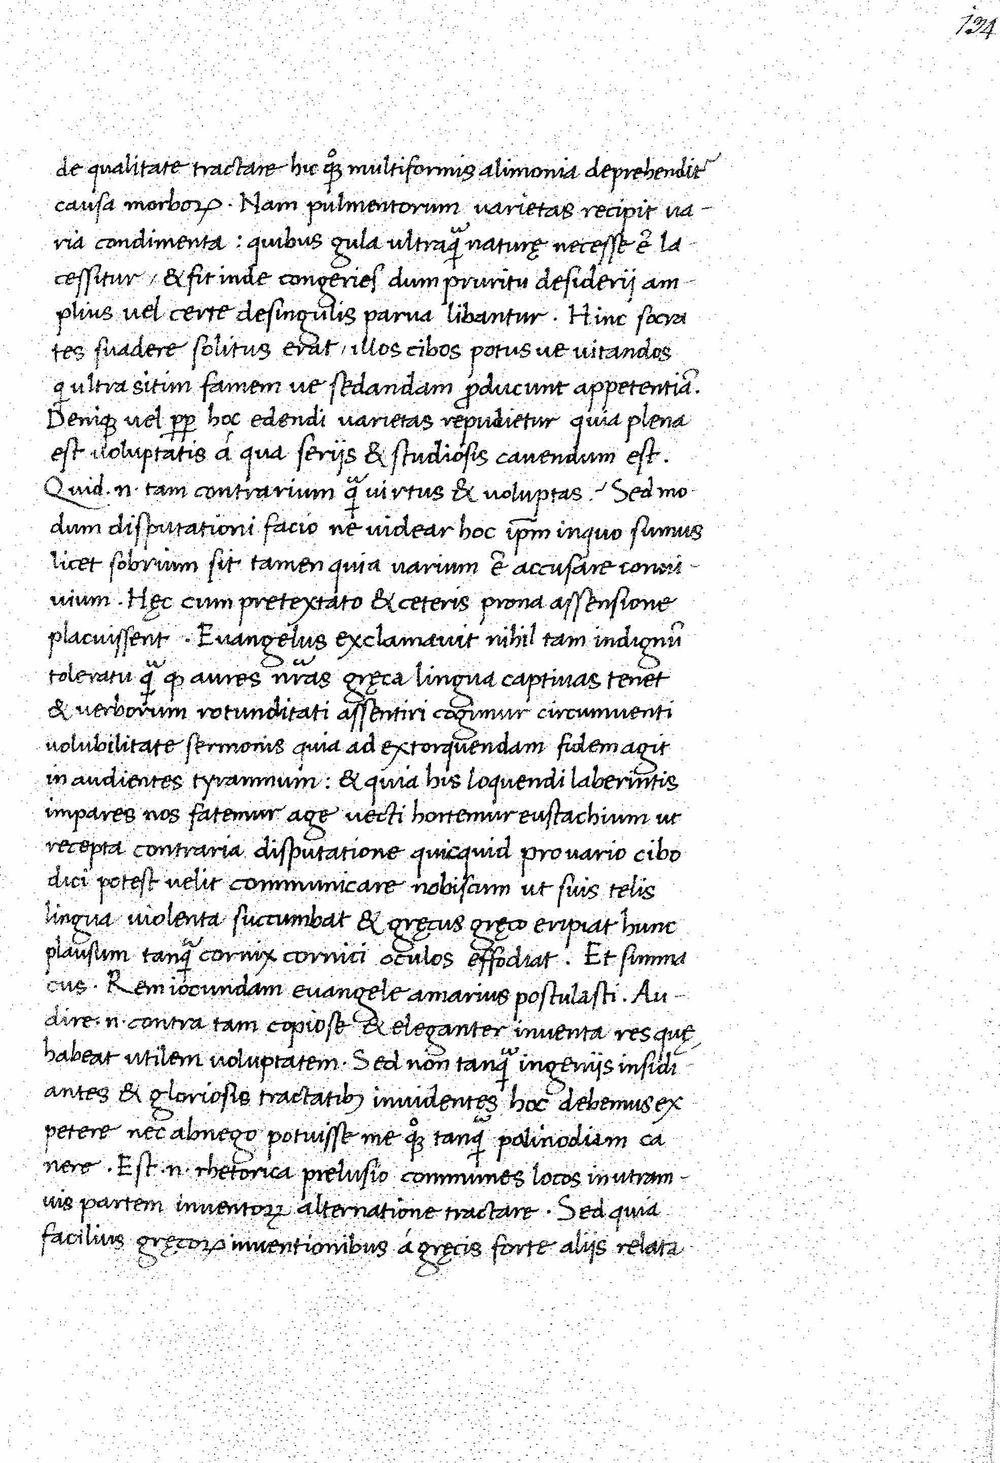 134
de qualitate tractare hic qͦꝫ multiformis alimonia deprehendit᷑
causa morboꝝ · Nam pulmentorum varietas recipit ua-
ria condimenta : quibus gula ultraqᷓ naturę necesse ē la-
cessitur / & fit inde congeries dum pruritu desiderij am-
plius uel certe desingulis parua libantur · Hinc socra
tes suadere solitus erat / illos cibos potus ue uitandos
q ultra sitim famem ue sedandam ꝓducunt appetentiā.
Deniqꝫ uel ꝑꝑ hoc edendi uarietas repudietur quia plena
est uoluptatis á qua serijs & studiosis cauendum est .
Quid · n · tam contrarium qᷓ uirtus & uoluptas .~ Sed mo-
dum disputationi facio ne uidear hoc ip̄m inquo sumus
licet sobrium sit tamen quia uarium ē accusare conui-
uium . Hęc cum pretextato & ceteris prona assensione
placuissent · Euangelus exclamauit nihil tam indignū
toleratu qᷓ ꝙ aures nr̄as gręca lingua captiuas tenet
& uerborum rotunditati assentiri cogimur circumuenti
uolubilitate sermonis quia ad extorquendam fidem agit
in audientes tyrannum : & quia his loquendi laberintis
impares nos fatemur age uecti hortemur eustachium ut
recepta contraria disputatione quicquid pro uario cibo
dici potest uelit communicare nobiscum ut suis telis
lingua uiolenta succumbat & gręcus gręco eripiat hunc
plausum tanqᷓ cornix cornici oculos effodiat . Et simma
cus · Rem iocundam euangele amarius postulasti . Au-
dire · n · contra tam copiose & eleganter inuenta res quę
habeat utilem uoluptatem · Sed non tanqᷓ ingenijs insidi-
antes & gloriosis tractatibꝫ inuidentes hoc debemus ex
petere nec abnego potuisse me qͦꝫ tanqᷓ polinodiam ca
nere · Est · n · rhetorica prelusio communes locos in utram-
uis partem inuentoꝝ alternatione tractare · Sed quia
facilius gręcoꝝ inuentionibus á gręcis forte alijs relata